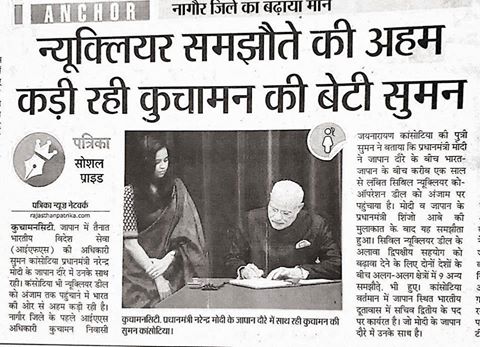 ANCHOR
नागौर जिले का बढ़ाया मान
न्यूक्लियर समझौते की अहम
कड़ी रही कुचामन की बेटी सुमन
पत्रिका
सोशल
प्राइड
पत्रिका न्यूज नेटवर्क
rajasthanpatrika.com
कुचामनसिटी. जापान में तैनात
भारतीय विदेश सेवा
(आईएफएस) की अधिकारी
सुमन कांसोटिया प्रधानमंत्री नरेन्द्र
मोदी के जापान दौरे में उनके साथ
रही। कांसोटिया भी न्यूक्लियर डील
को अंजाम तक पहुंचाने में भारत
की ओर से अहम कड़ी रही है।
नागौर जिले के पहले आईएएस
अधिकारी कुचामन निवासी
कुचामनसिटी. प्रधानमंत्री नरेन्द्र मोदी के जापान दौरे में साथ रही कुचामन की
सुमन कांसोटिया।
जयनारायण कांसोटिया की पुत्री
सुमन ने बताया कि प्रधानमंत्री मोदी
ने जापान दौरे के बीच भारत-
जापान के बीच करीब एक साल
से लंबित सिविल न्यूक्लियर को-
ऑपरेशन डील को अंजाम पर
पहुंचाया है। मोदी व जापान के
प्रधानमंत्री शिंजो आबे की
मुलाकात के बाद यह समझौता
हुआ। सिविल न्यूक्लियर डील के
अलावा द्विपक्षीय सहयोग को
बढ़ावा देने के लिए दोनों देशों के
बीच अलग-अलग क्षेत्रों में 9 अन्य
समझौते भी हुए। कांसोटिया
वर्तमान में जापान स्थित भारतीय
दूतावास में सचिव द्वितीय के पद
पर कार्यरत है। जो मोदी के जापान
दौरे में उनके साथ है।